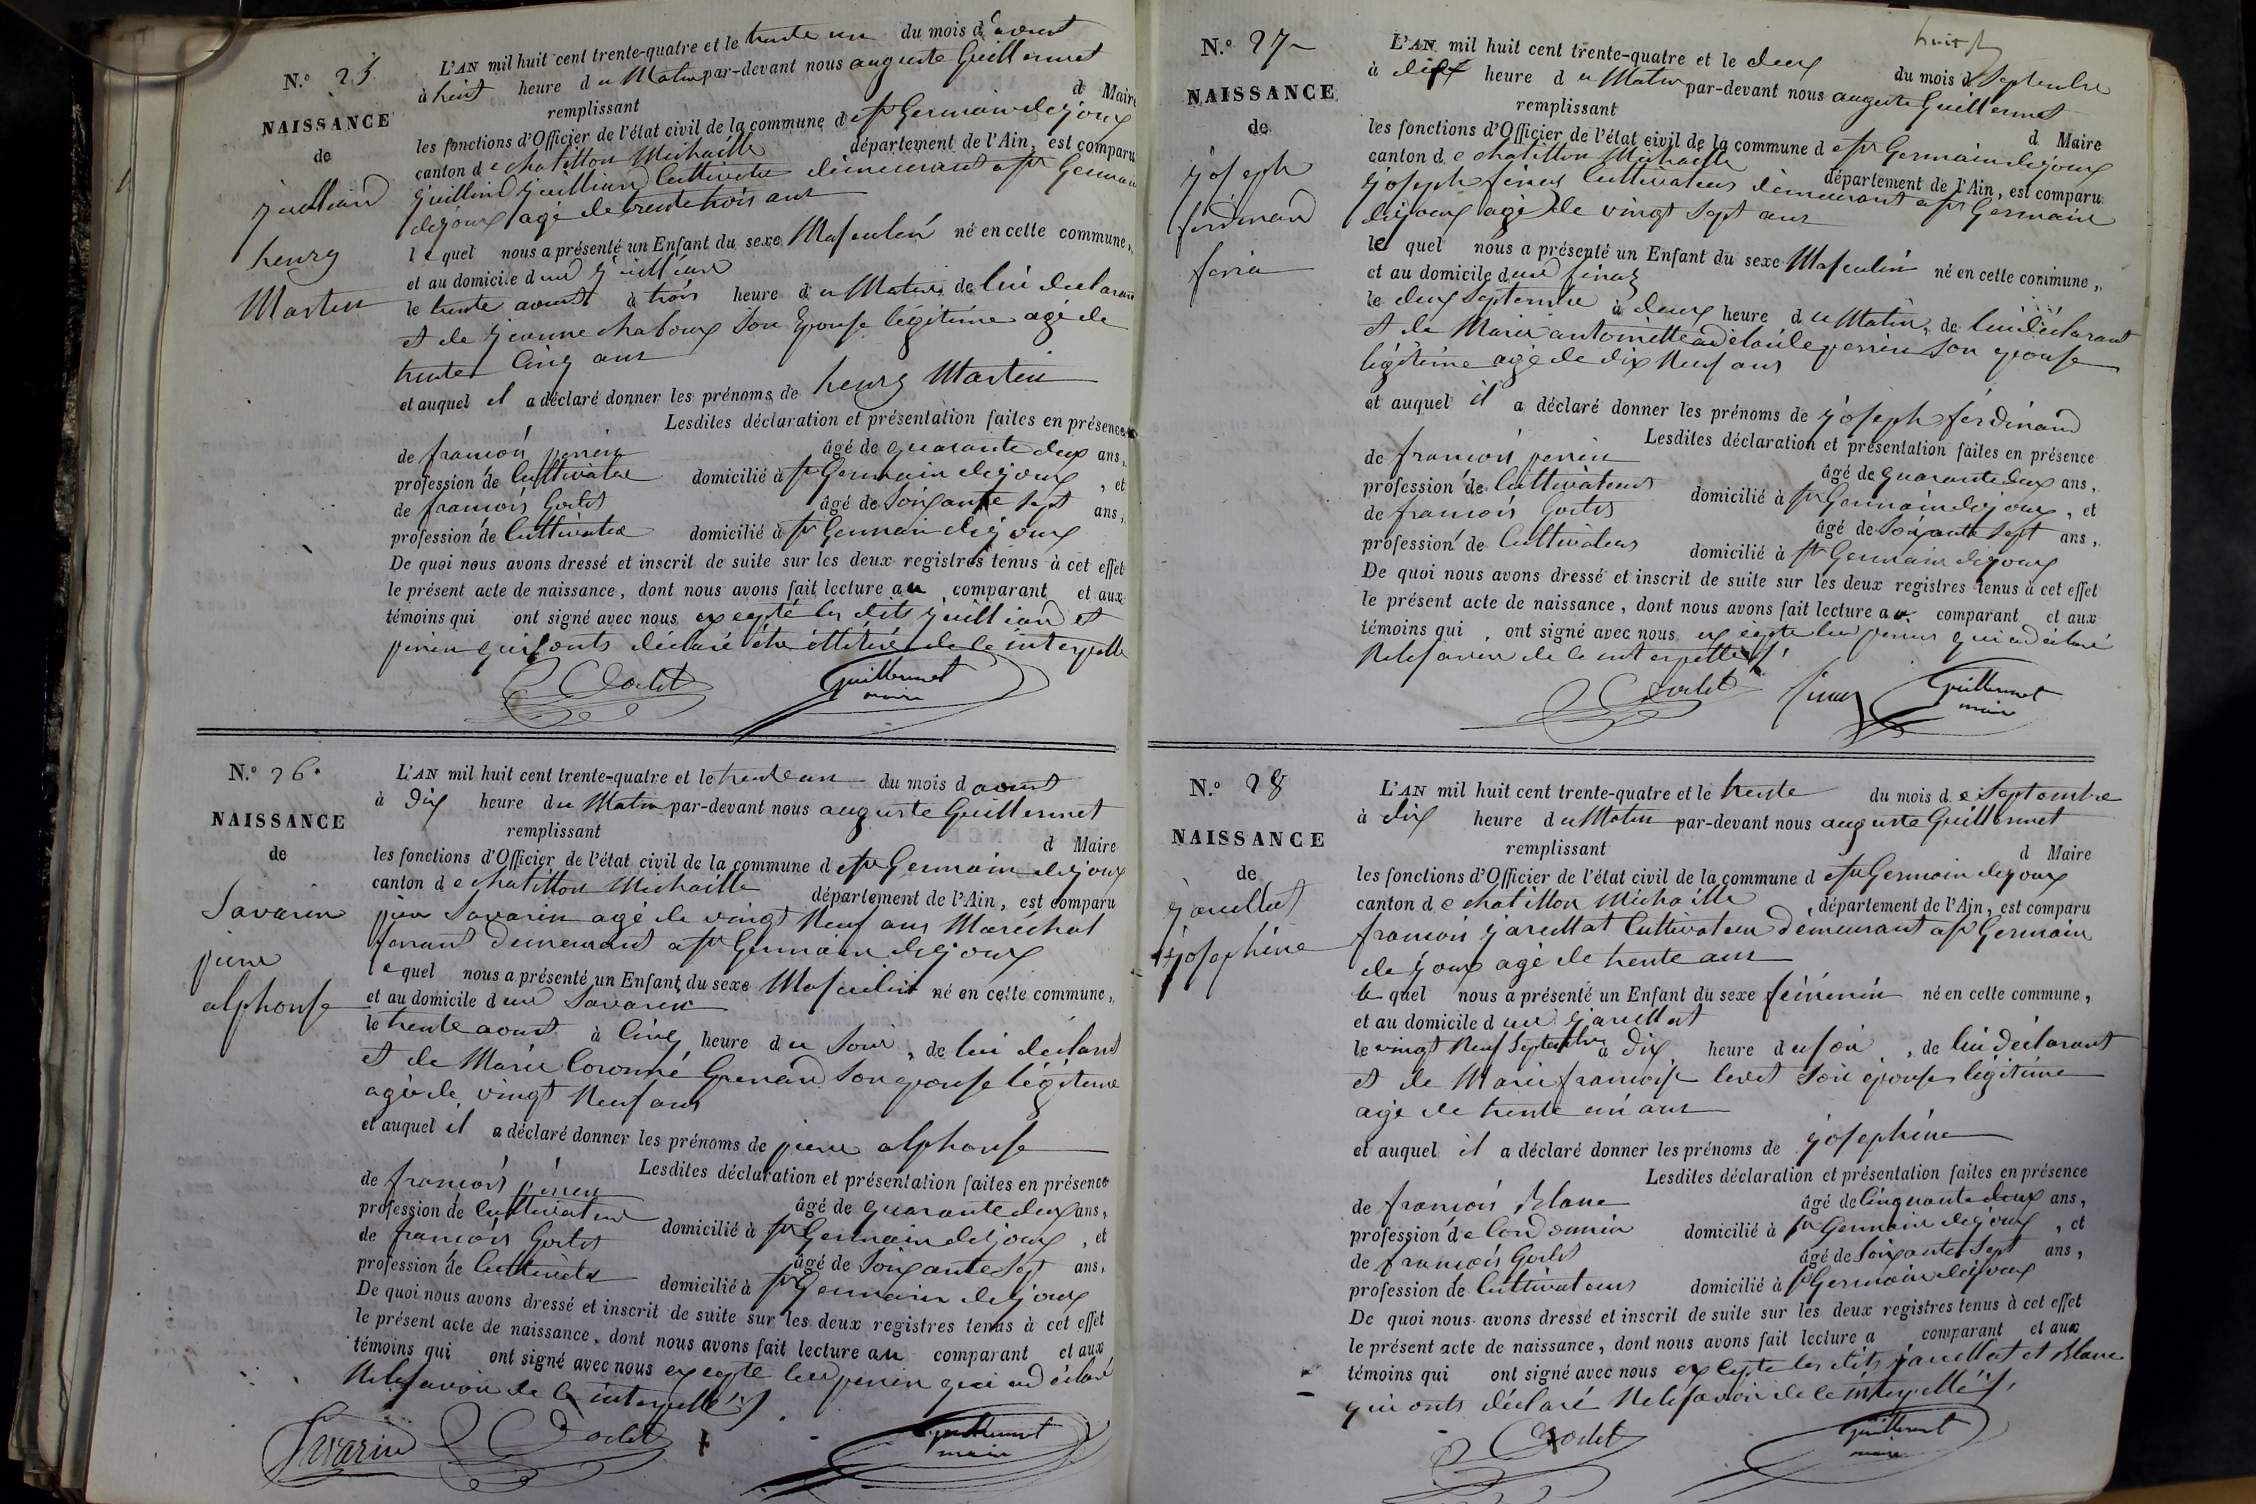 N.º 25.
NAISSANCE
de
juilliard
henry
Martin
L'AN mil huit cent trente-quatre et le trente un du mois d'aoust
à huit heure du Matin par-devant nous auguste Guillermet
remplissant d Maire
les fonctions d'Officier de l'état civil de la commune de st Germain dejoux
canton de chatillon Michaille département de l'Ain, est comparu
juilliard Cultivateur demeurant a st Germain
dejoux agé de trente trois ans
lequel nous a présenté un Enfant du sexe Masculin né en cette commune,
et au domicile dud juilliard
le trente aoust à trois heure du Matin de lui declarant
et de jeanne chaboux Son Epouse legitime agé de
trente Cinq ans
et auquel il a déclaré donner les prénoms de henry Martin
Lesdites déclaration et présentation faites en présence
de francois perrin âgé de quarante deux ans,
profession de Cultivateur domicilié à st Germain dejoux, et
de francois Godet âgé de Soixante sept ans,
profession de Cultivateur domicilié à st Germain dejoux
De quoi nous avons dressé et inscrit de suite sur les deux registres tenus à cet effet
le présent acte de naissance, dont nous avons fait lecture au comparant et aux
témoins qui ont signé avec nous excepté les dits juilliard et
perrin qui onts déclaré être illétéré de ce interpellé
Godet Guillermet
maire
N.º 26.
NAISSANCE
de
Savarin
pierre
alphonse
L'AN mil huit cent trente-quatre et le trente un du mois d aoust
à dix heure du Matin par-devant nous auguste Guillermet
remplissant d Maire
les fonctions d'Officier de l'état civil de la commune de st Germain dejoux
canton de chatillon Michaille département de l'Ain, est comparu
pierre Savarin agé de vingt Neuf ans Maréchal
ferrant demeurant a st Germain dejoux
lequel nous a présenté un Enfant du sexe Masculin né en cette commune,
et au domicile dud Savarin
le trente aoust à Cinq heure du Soir, de lui déclarant
et de Marie Coronné Grenard Son epouse légitime
agé de vingt Neuf ans
et auquel il a déclaré donner les prénoms de pierre alphonse
Lesdites déclaration et présentation faites en présence
de francois perrin âgé de quarante deux ans,
profession de Cultivateur domicilié à st Germain dejoux, et
de francois Godet âgé de Soixante Sept ans,
profession de Cultivateur domicilié à st Germain dejoux
De quoi nous avons dressé et inscrit de suite sur les deux registres tenus à cet effet
le présent acte de naissance, dont nous avons fait lecture au comparant et aux
témoins qui ont signé avec nous excepte led perrin qui a déclaré
Ne le savoir de ce interpellé
Savarin Godet Guillermet
maire
huit
N.º 27
NAISSANCE
de
joseph
ferdinand
L'AN mil huit cent trente-quatre et le deux du mois de Septembre
à dix heure du Matin par-devant nous auguste Guillermet
remplissant d Maire
les fonctions d'Officier de l'état civil de la commune de st Germain dejoux
canton de chatillon Michaille département de l'Ain, est comparu
joseph Cultivateur demeurant a st Germain
dejoux agé de vingt sept ans
le quel nous a présenté un Enfant du sexe Masculin né en cette commune,
et au domicile dud
le deux Septembre à deux heure du Matin, de lui déclarant
et de Marie antoinette adélaide perrin Son epouse
légitime agé de dix Neuf ans
et auquel il a déclaré donner les prénoms de joseph ferdinand
Lesdites déclaration et présentation faites en présence
de francois perrin âgé de quarante deux ans,
profession de Cultivateur domicilié à st Germain dejoux, et
de francois Godet âgé de Soixante Sept ans,
profession de Cultivateur domicilié à st Germain dejoux
De quoi nous avons dressé et inscrit de suite sur les deux registres tenus à cet effet
le présent acte de naissance, dont nous avons fait lecture au comparant et aux
témoins qui, ont signé avec nous excepte led perrin qui a déclaré
Ne le savoir de ce interpellé
Godet Guillermet
maire
N.º 28
NAISSANCE
de
jarcellat
josephine
L'AN mil huit cent trente-quatre et le trente du mois de Septembre
à dix heure du Matin par-devant nous auguste Guillermet
remplissant d Maire
les fonctions d'Officier de l'état civil de la commune de st Germain dejoux
canton de chatillon Michaille département de l'Ain, est comparu
francois jarcellat Cultivateur demeurant a st Germain
de joux agé de trente ans
le quel nous a présenté un Enfant du sexe féminin né en cette commune,
et au domicile dud jarcellat
le vingt Neuf Septembre à dix heure du soir, de lui déclarant
et de Marie francoise levet Son epouse légitime
agé de trente un ans
et auquel il a déclaré donner les prénoms de josephine
Lesdites déclaration et présentation faites en présence
de francois Blanc âgé de Cinquante deux ans,
profession de Cordonnier domicilié à st Germain dejoux, et
de francois Godet âgé de Soixante Sept ans,
profession de Cultivateur domicilié à st Germain dejoux
De quoi nous avons dressé et inscrit de suite sur les deux registres tenus à cet effet
le présent acte de naissance, dont nous avons fait lecture a comparant et aux
témoins qui ont signé avec nous excepte les dits jarcellat et Blanc
qui onts déclaré Ne le savoir de ce interpellés
Godet Guillermet
maire